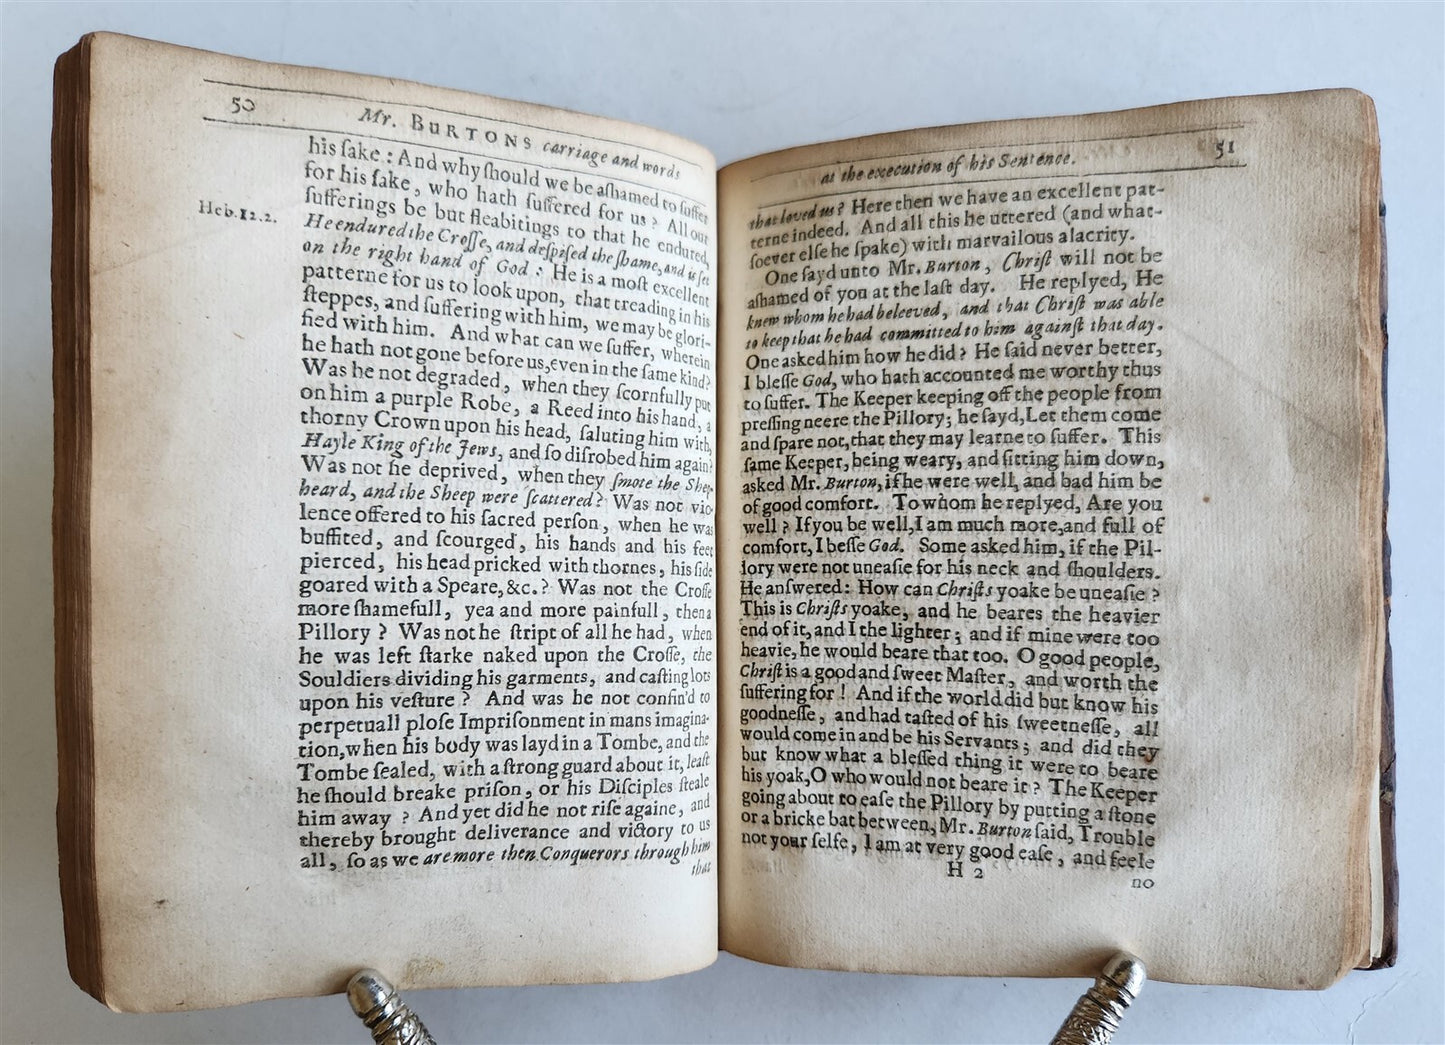 50
Mr. BURTONS carriage and words
his ſake : And why ſhould we be aſhamed to ſuffer
for his ſake, who hath ſuffered for us ? All our
ſufferings be but fleabitings to that he endured,
Heb. 12. 2.
He endured the Croſſe, and deſpiſed the ſhame, and is ſet
on the right hand of God : He is a moſt excellent
patterne for us to look upon, that treading in his
ſteppes, and ſuffering with him, we may be glori-
fied with him. And what can we ſuffer, wherein
he hath not gone before us, even in the ſame kind?
Was he not degraded, when they ſcornfully put
on him a purple Robe, a Reed into his hand, a
thorny Crown upon his head, ſaluting him with,
Hayle King of the Jews, and ſo diſrobed him again?
Was not he deprived, when they ſmote the Shep-
heard, and the Sheep were ſcattered? Was not vio-
lence offered to his ſacred perſon, when he was
buffited, and ſcourged, his hands and his feet
pierced, his head pricked with thornes, his ſide
goared with a Speare, &c. ? Was not the Croſſe
more ſhamefull, yea and more painfull, then a
Pillory ? Was not he ſtript of all he had, when
he was left ſtarke naked upon the Croſſe, the
Souldiers dividing his garments, and caſting lots
upon his veſture ? And was he not confin'd to
perpetuall ploſe Impriſonment in mans imagina-
tion, when his body was layd in a Tombe, and the
Tombe ſealed, with a ſtrong guard about it, leaſt
he ſhould breake priſon, or his Diſciples ſteale
him away ? And yet did he not riſe againe, and
thereby brought deliverance and victory to us
all, ſo as we are more then Conquerors through him
that
at the execution of his Sentence.
51
that loved us? Here then we have an excellent pat-
terne indeed. And all this he uttered (and what-
ſoever elſe he ſpake) with marvailous alacrity.
One ſayd unto Mr. Burton, Chriſt will not be
aſhamed of you at the laſt day. He replyed, He
knew whom he had beleeved, and that Chriſt was able
to keep that he had committed to him againſt that day.
One asked him how he did? He ſaid never better,
I bleſſe God, who hath accounted me worthy thus
to ſuffer. The Keeper keeping off the people from
preſſing neere the Pillory; he ſayd, Let them come
and ſpare not, that they may learne to ſuffer. This
ſame Keeper, being weary, and ſitting him down,
asked Mr. Burton, if he were well, and bad him be
of good comfort. To whom he replyed, Are you
well ? If you be well, I am much more, and full of
comfort, I beſſe God. Some asked him, if the Pil-
lory were not uneaſie for his neck and ſhoulders.
He anſwered: How can Chriſts yoake be uneaſie ?
This is Chriſts yoake, and he beares the heavier
end of it, and I the lighter; and if mine were too
heavie, he would beare that too. O good people,
Chriſt is a good and ſweet Maſter, and worth the
ſuffering for ! And if the world did but know his
goodneſſe, and had taſted of his ſweetneſſe, all
would come in and be his Servants; and did they
but know what a bleſſed thing it were to beare
his yoak, O who would not beare it? The Keeper
going about to eaſe the Pillory by putting a ſtone
or a bricke bat between, Mr. Burton ſaid, Trouble
not your ſelfe, I am at very good eaſe, and feele
H 2
no